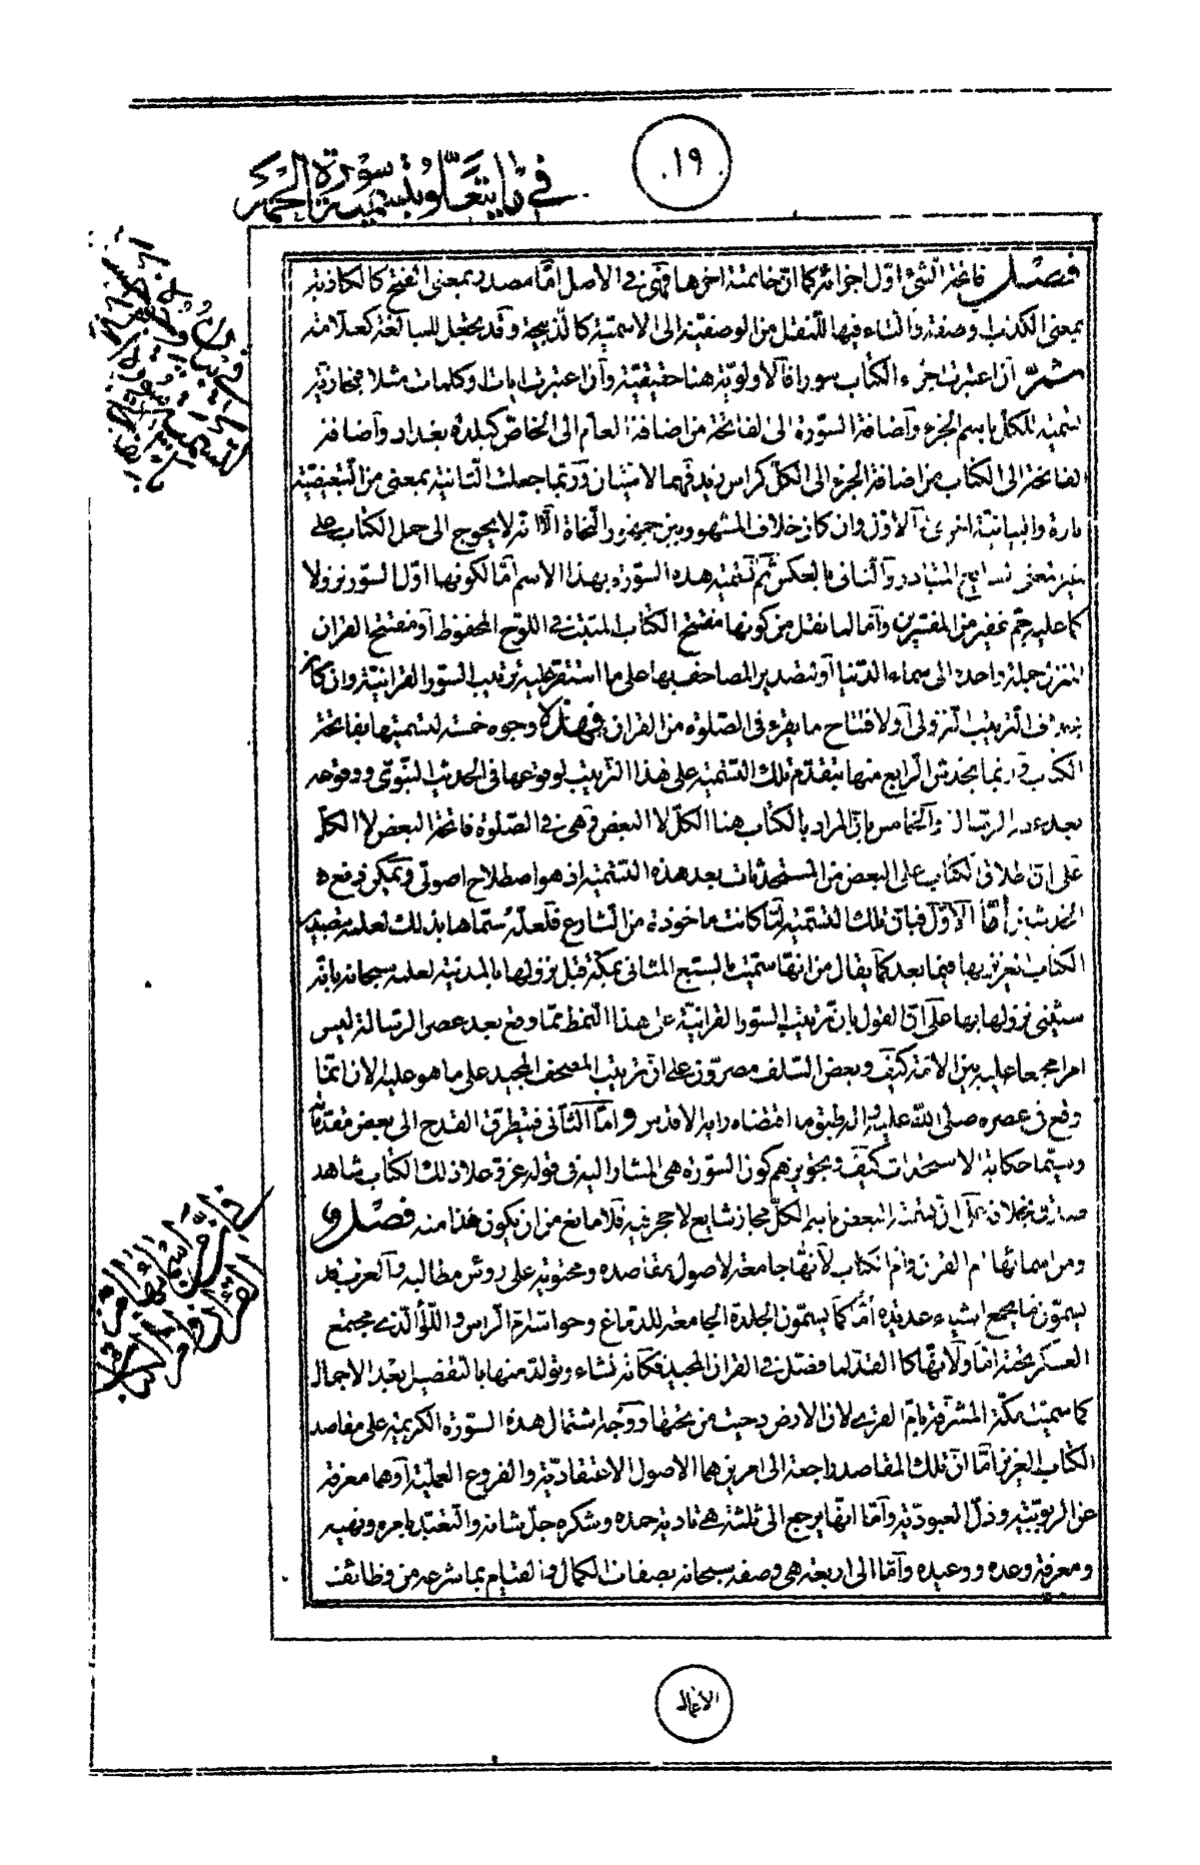 ١٩
في ما يتعلق بتسمية سورة الحمد
فصل فاتحة الشئ اول اجزائه كما ان خاتمته اخرها فهي في الاصل اما مصدر بمعنى الفتح كالكاذبة
بمعنى الكذب وصفة والتاء فيها للنقل من الوصفية الى الاسمية كالذبيحة وقد يجعل للمبالغة كعلامة
ثم ان اعتبرت جزء الكتاب سورا فالاولوية هنا حقيقية وان اعتبرت ايات وكلمات مثلا فمجازية
تسمية للكل باسم الجزء واضافة السورة الى الفاتحة من اضافة العام الى الخاص كبلدة بغداد واضافة
الفاتحة الى الكتاب من اضافة الجزء الى الكل كراس زيد فهما لاميتان وربما جعلت الثانية بمعنى من التبعيضية
تارة والبيانية اخرى والاول وان كان خلاف المشهور بين جمهور النحاة الا انه لا يحوج الى حمل الكتاب على
غير معنى المتبادر والثاني بالعكس ثم تسمية هذه السورة بهذا الاسم اما لكونها اول السور نزولا
كما عليه جم غفير من المفسرين واما لما نقل من كونها مفتتح الكتاب المثبت في اللوح المحفوظ او مفتتح القران
المنزل جملة واحدة الى سماء الدنيا او لتصدير المصاحف بها على ما استقر عليه ترتيب السور القرانية وان كان
بخلاف الترتيب النزولي او لافتتاح ما يقرء في الصلوة من القران فهذه وجوه خمسة لتسميتها بفاتحة
الكتاب وربما يخدش الرابع منها بتقدم تلك التسمية على هذا الترتيب لوقوعها في الحديث النبوي ووقوعه
بعد عصر الرسالة والخامس بان المراد بالكتاب هنا الكل لا البعض وهي في الصلوة فاتحة البعض لا الكل
على ان اطلاق الكتاب على البعض من المستحدثات بعد هذه التسمية اذ هو اصطلاح اصولي ويمكن دفع
الخدشتين اما الاول فبان تلك التسمية لما كانت ماخوذة من الشارع فلعله سماها بذلك لعلمه بتصدير
الكتاب العزيز بها فيما بعد كما يقال من انها سميت بالسبع المثاني بمكة قبل نزولها بالمدينة لعلمه سبحانه بانه
سيثني نزولها بها على ان القول بان ترتيب السور القرانية على هذا النمط مما وقع بعد عصر الرسالة ليس
امرا مجمعا عليه بين الامة كيف وبعض السلف مصرون على ان ترتيب المصحف المجيد على ما هو عليه الان انما
وقع في عصره صلى الله عليه واله طبق ما اقتضاه رايه الاقدس واما الثاني فيتطرق القدح الى بعض مقدماته
وسيما حكاية الاستحداث كيف وتجويزهم كون السورة هي المشار اليه في قوله عز وعلا ذلك الكتاب شاهد
صدق بخلافه بما ان تسمية البعض باسم الكل مجاز شايع لا حجر فيه فلا مانع من ان يكون هذا منه فصل و
ومن اسمائها ام القران وام الكتاب لانها جامعة لاصول مقاصده ومحتوية على رؤس مطالبه والعرب قد
يسمون ما يجمع اشياء عديدة اما كما يسمون الجلدة الجامعة للدماغ وحواسه ام الراس واللواء الذي يجتمع
العسكر تحته اما ولانها كالفذلكة لما فصل في القران المجيد فكانه نشاء وتولد منها بالتفصيل بعد الاجمال
كما سميت مكة المشرفة بام القرى لان الارض دحيت من تحتها ووجه اشتمال هذه السورة الكريمة على مقاصد
الكتاب العزيز اما ان تلك المقاصد راجعة الى امرين هما الاصول الاعتقادية والفروع العملية او هما معرفة
عز الربوبية وذل العبودية واما انها يرجع الى ثلثة هي تادية حمده وشكره جل شانه والتعبد بامره ونهيه
ومعرفة وعده ووعيده واما الى اربعة هي وصفه سبحانه بصفات الكمال والقيام بما شرعه من وظائف
الاعمال